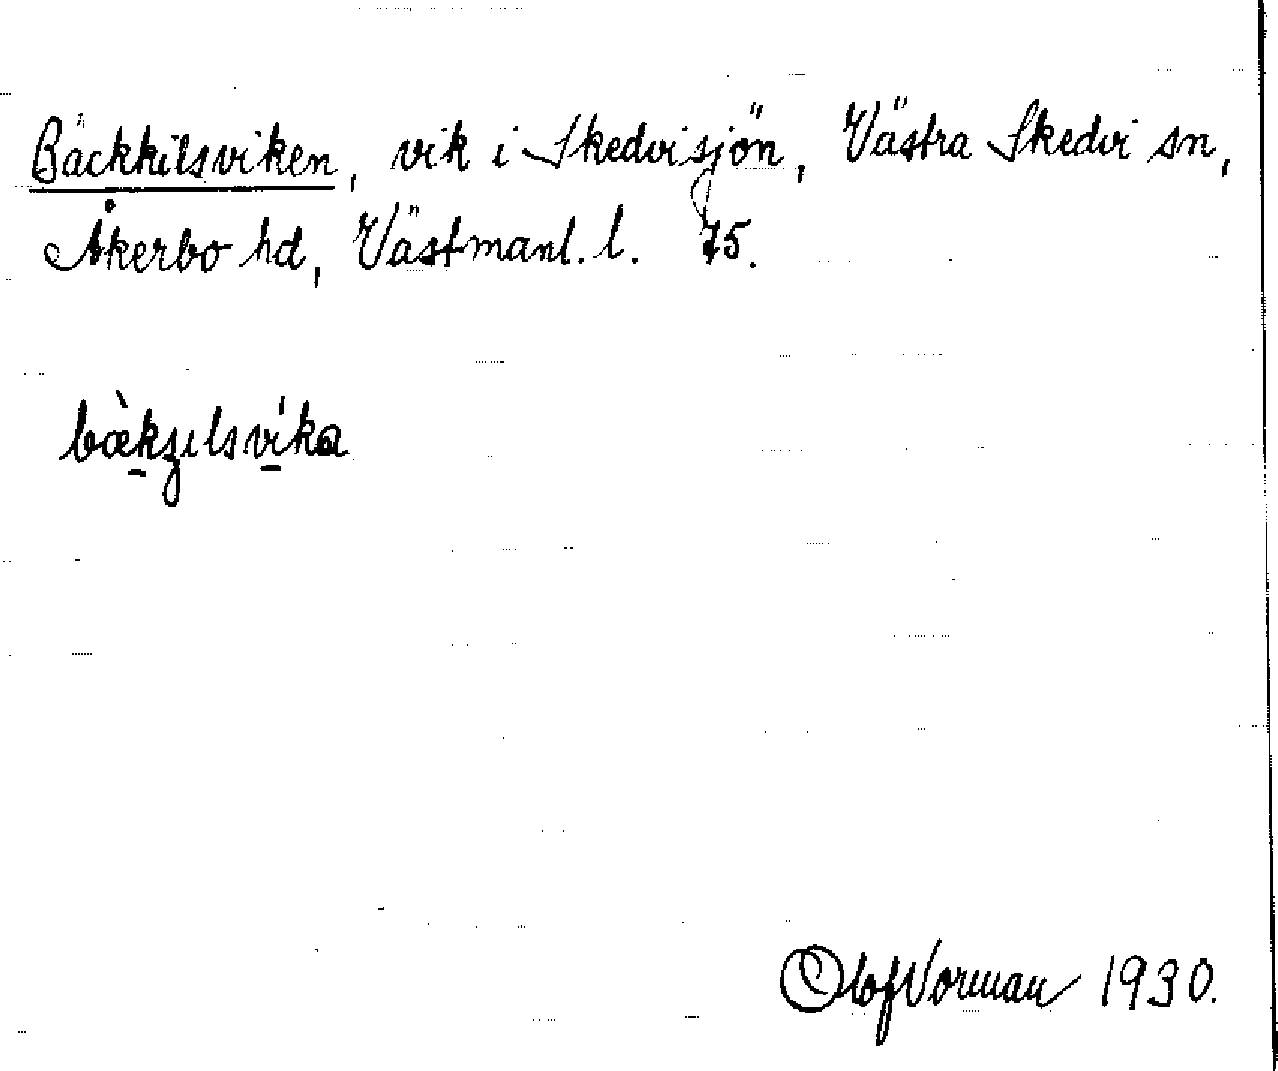 Bäckkilsviken, vik i Skedvisjön, Västra Skedvi sn,
Åkerbo hd, Västmanl. l. 75.
bæ̀kʂılsvíka
Olof Norman 1930.